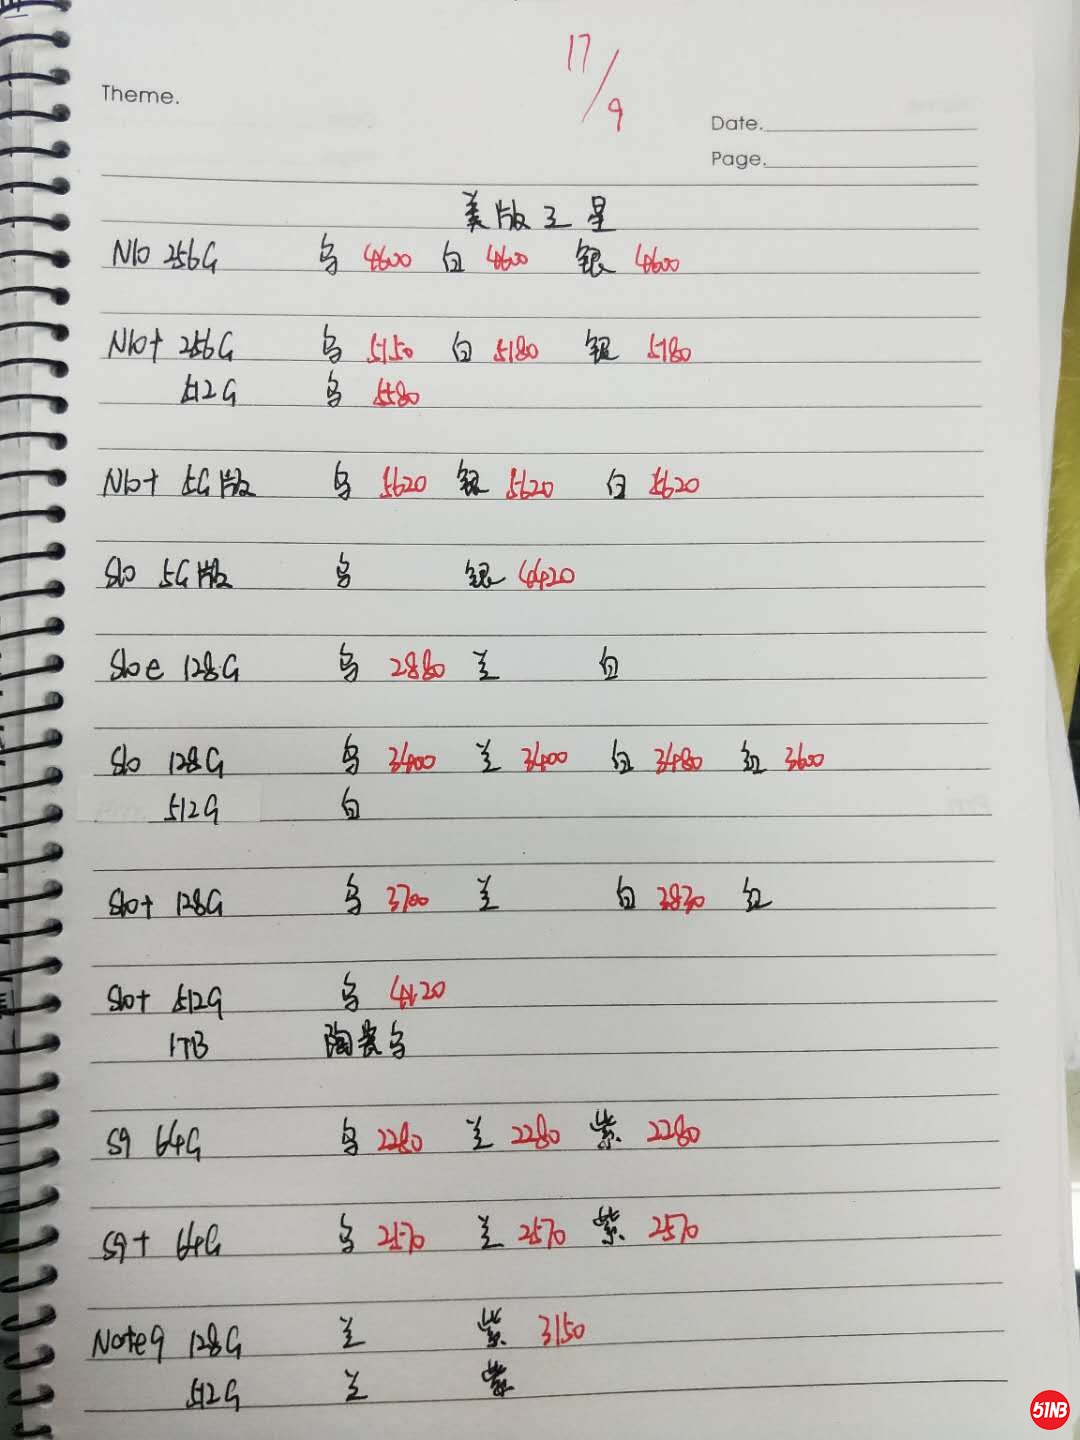 17/9
Theme.
Date.
Page.
美版三星
N10 256G 乌 4600 白 4600 银 4600
N10+ 256G 乌 5150 白 5180 银 5180
512G 乌 5580
N10+ 5G版 乌 5620 银 5620 白 5620
S10 5G版 乌 银 4420
S10e 128G 乌 2880 兰 白
S10 128G 乌 3400 兰 3400 白 3480 红 3600
512G 白
S10+ 128G 乌 3700 兰 白 3830 红
S10+ 512G 乌 4120
1TB 陶瓷乌
S9 64G 乌 2280 兰 2280 紫 2280
S9+ 64G 乌 2570 兰 2570 紫 2570
Note9 128G 兰 紫 3150
512G 兰 紫
51NB